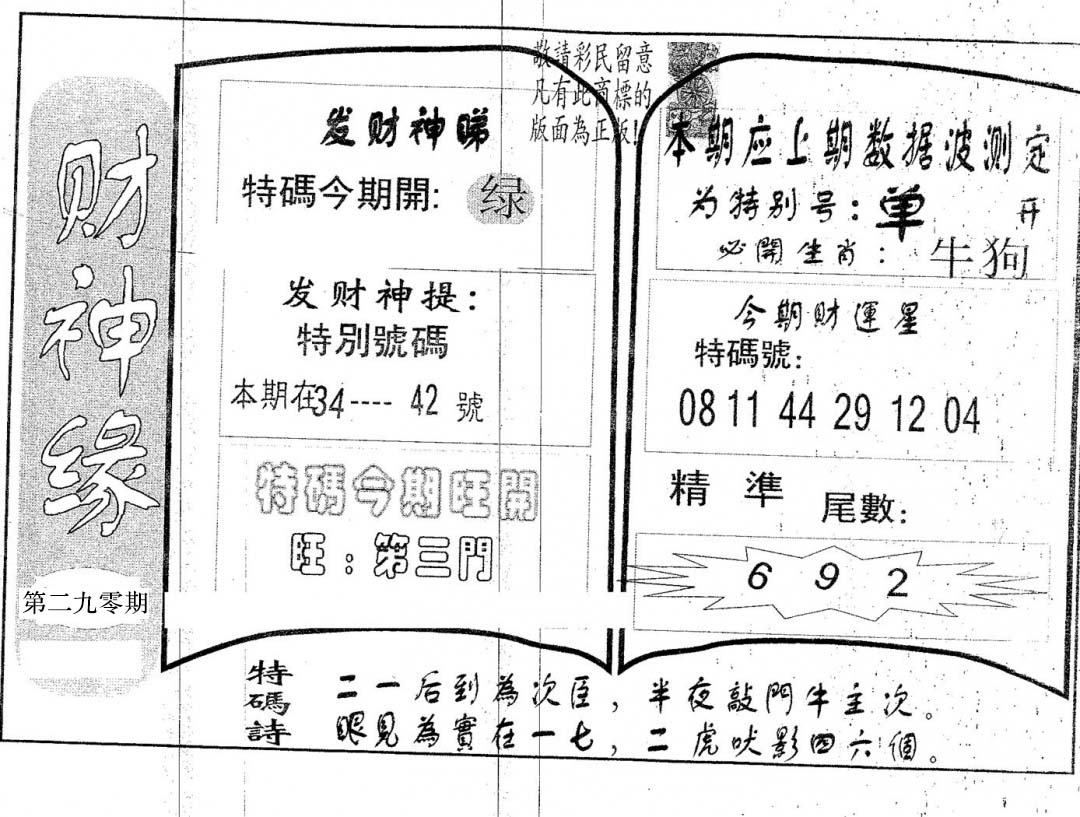 财神緣
第二九零期
敬請彩民留意
凡有此商標的
版面為正版!
发财神睇
特碼今期開: 绿
发财神提:
特別號碼
本期在34---- 42 號
特碼今期旺開
旺:第三門
本期应上期数据波测定
为特别号:单 开
必開生肖: 牛狗
今期财運星
特碼號:
08 11 44 29 12 04
精準 尾數:
6 9 2
特碼詩
二一后到為次臣,半夜敲門牛主次。
眼見為實在一七,二虎吠影四六個。